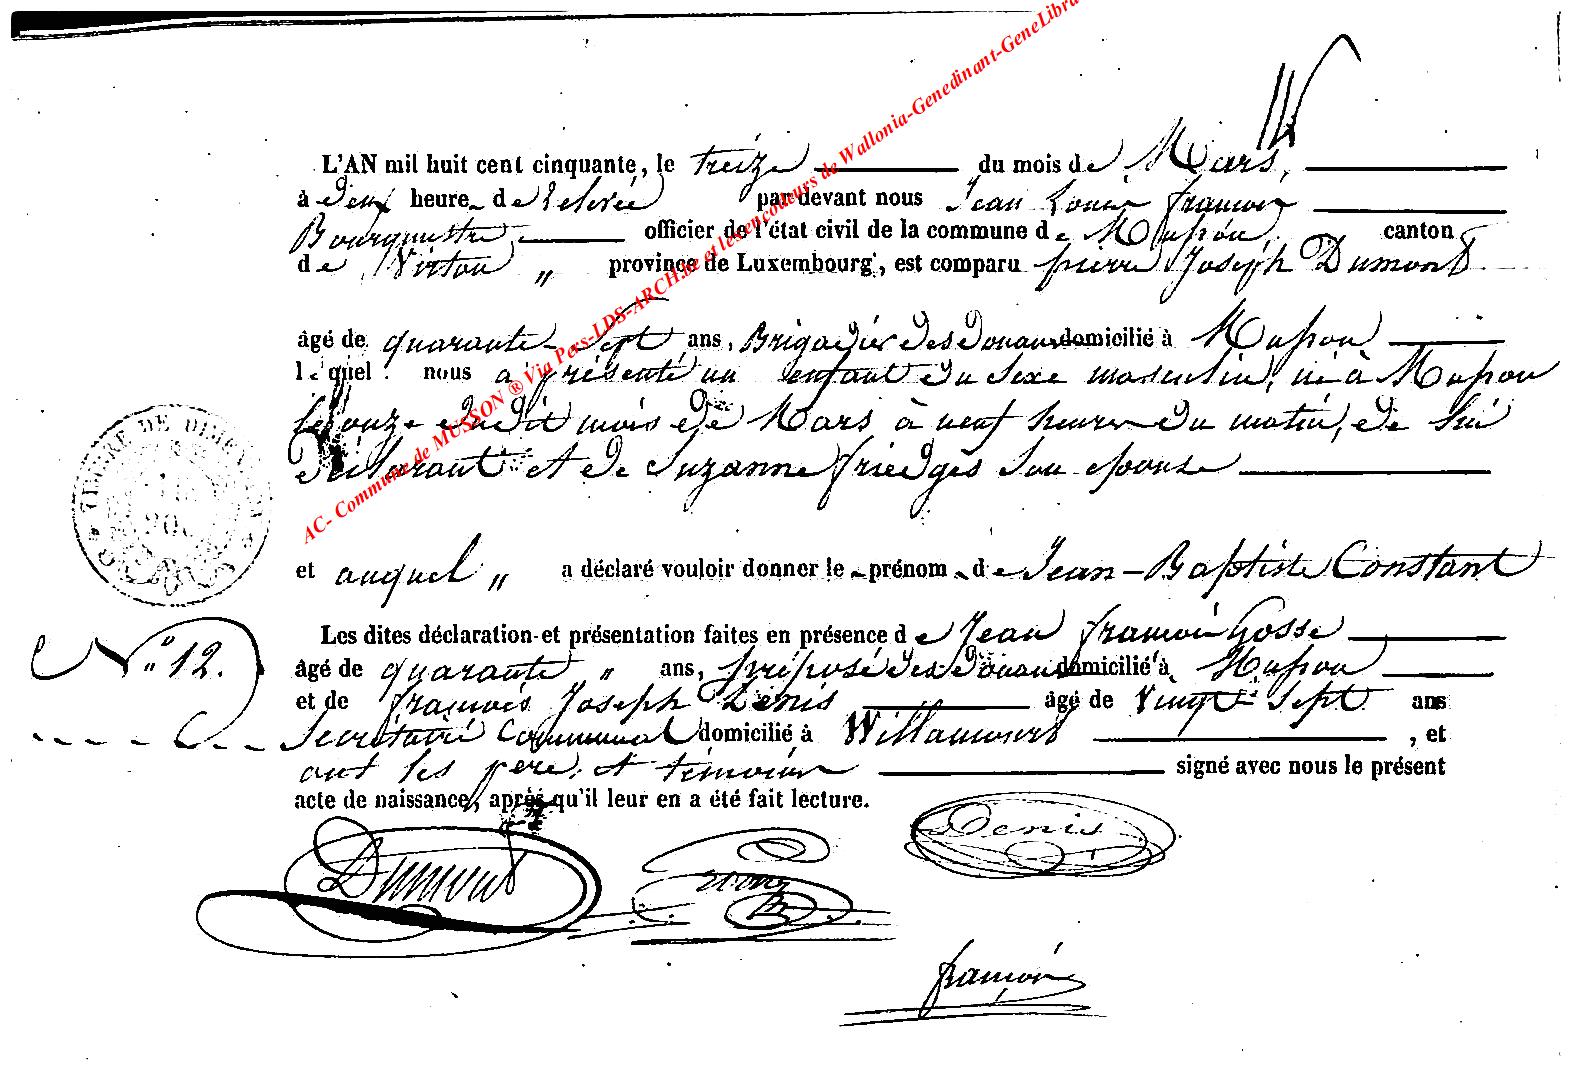 L'AN mil huit cent cinquante, le treize du mois de Mars,
à deux heure de relevée par devant nous Jean Louis françois
Bourgmestre officier de l'état civil de la commune de Musson, canton
de Virton „ province de Luxembourg, est comparu pierre Joseph Dumont
âgé de quarante-sept ans, Brigadier des Douanes domicilié à Musson
lequel nous a présenté un enfant du sexe masculin, né à Musson
le onze dudit mois de Mars à neuf heures du matin, de lui
déclarant et de Suzanne friedgès son épouse
et auquel „ a déclaré vouloir donner le prénom de Jean-Baptiste Constant
Les dites déclaration et présentation faites en présence de Jean françois Gosse
N° 12.
âgé de quarante „ ans, préposé des Douanes domicilié à Musson
et de françois Joseph Denis âgé de vingt-sept ans
Secrétaire Communal domicilié à Willancourt, et
ont les père et témoins signé avec nous le présent
acte de naissance, après qu'il leur en a été fait lecture.
Dumont
Denis
françois
TIMBRE DE DIM
AC- Commune de MUSSON ® Via Pers-LDS-ARCH.be et les encodeurs de Wallonia-Genedinant-GeneLibra